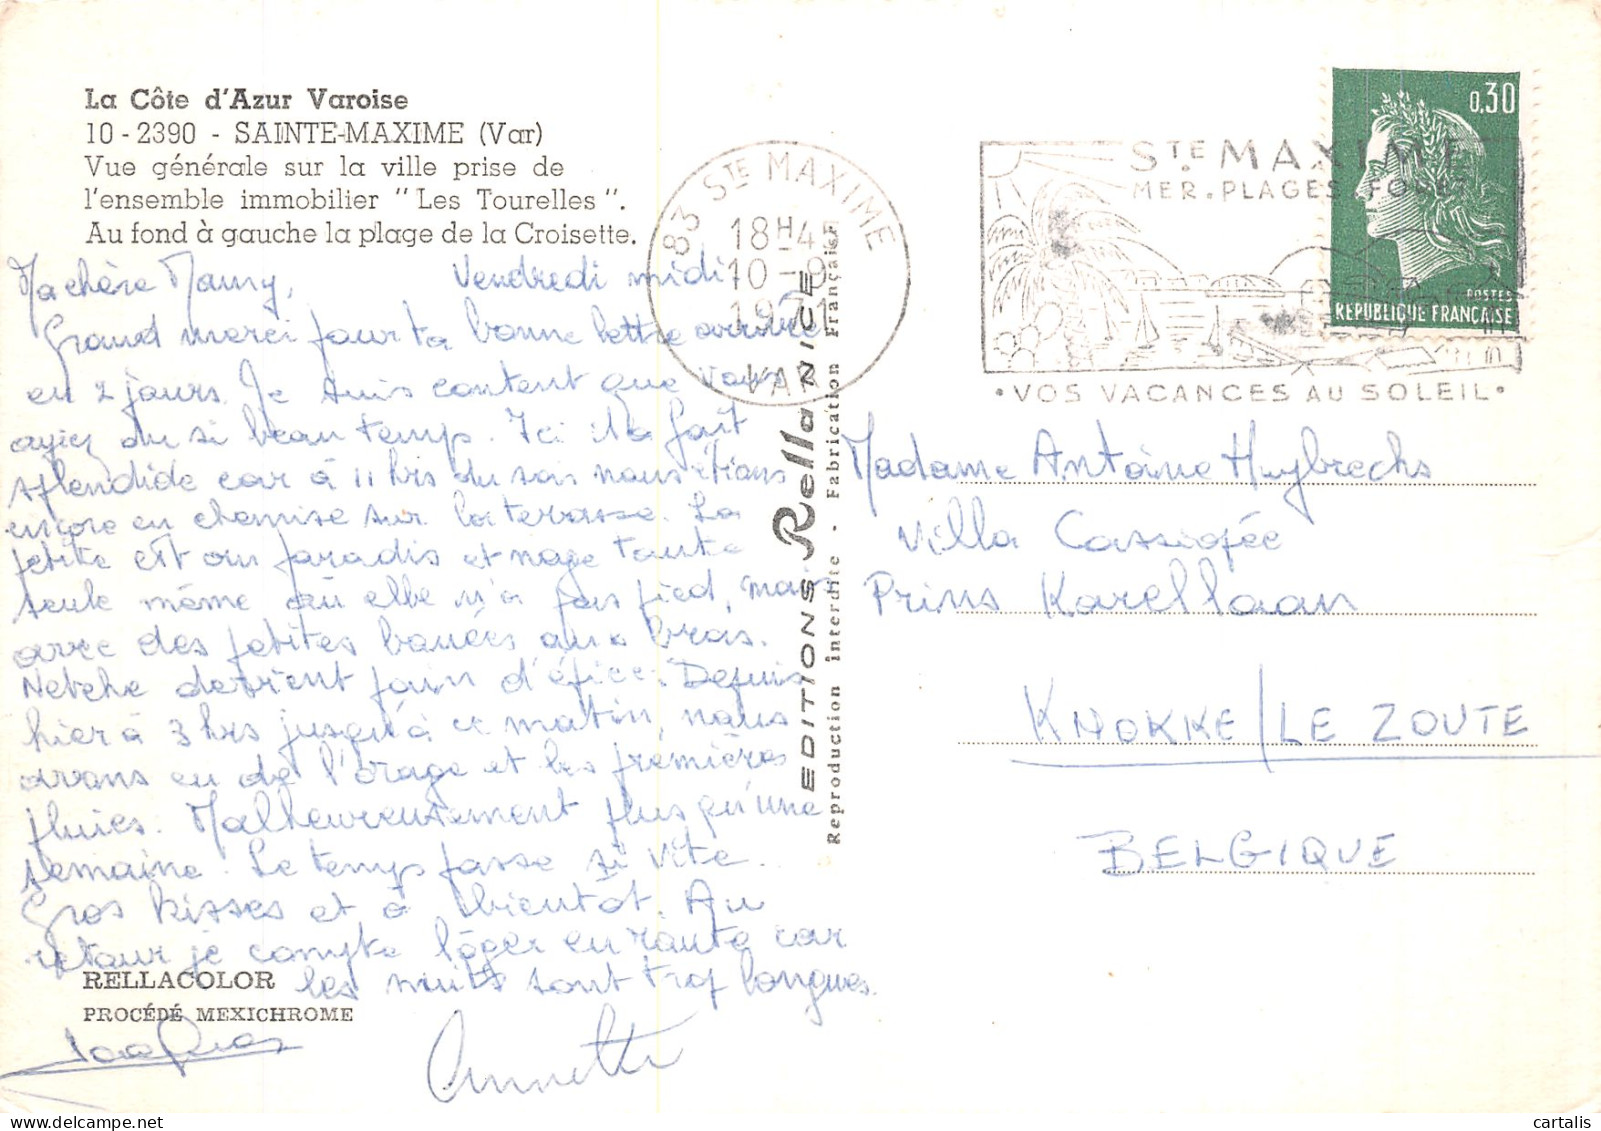 La Côte d'Azur Varoise
10-2390 - SAINTE-MAXIME (Var)
Vue générale sur la ville prise de
l'ensemble immobilier "Les Tourelles".
Au fond à gauche la plage de la Croisette.
Ma chère Mamy, Vendredi midi
Grand merci pour ta bonne lettre arrivée
en 2 jours. Je suis content que vous
ayiez du si beau temps. Ici il a fait
splendide car à 11 hrs du soir nous étions
encore en chemise sur la terrasse. La
petite est au paradis et nage toute
seule même où elle n'a pas pied, mais
avec des petites bouées aux bras.
Netche devient pain d'épice. Depuis
hier à 3 hrs jusqu'à ce matin, nous
avons eu de l'orage et les premières
pluies. Malheureusement plus qu'une
semaine. Le temps passe si vite.
Gros kisses et à bientôt. Au
retour je compte loger en route car
les nuits sont trop longues.
Jacques
Annette
RELLACOLOR
PROCÉDÉ MEXICHROME
EDITIONS Rella NICE
Reproduction interdite - Fabrication Française
83 STE MAXIME
18H4
10-9
1971
VAR
STE MAXIME
MER. PLAGES. FORET
• VOS VACANCES AU SOLEIL •
0,30
POSTES
REPUBLIQUE FRANÇAISE
Madame Antoine Huybrechs
Villa Cassiopée
Prins Karellaan
KNOKKE/LE ZOUTE
BELGIQUE
cartalis